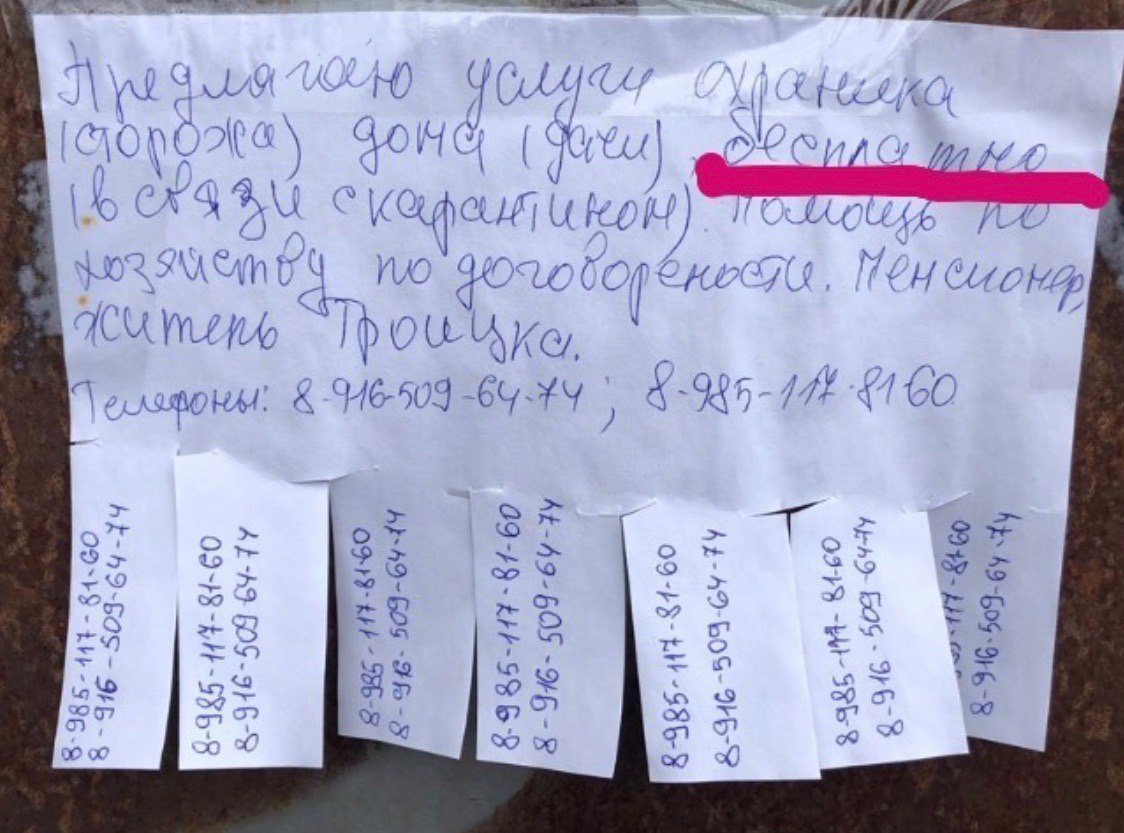 Предлагаю услуги охраника
(сторожа) дома (дачи), бесплатно
(в связи с карантином). Помощь по
хозяйству по договорености. Пенсионер,
житель Троицка.
Телефоны: 8-916-509-64-74; 8-985-117-81-60
8-985-117-81-60
8-916-509-64-74
8-985-117-81-60
8-916-509 64-74
8-985-117-81-60
8-916-509-64-74
8-985-117-81-60
8-916-509-64-74
8-985-117-81-60
8-916-509-64-74
8-985-117-81-60
8-916-509-64-74
117-81-60
8-916-509-64-74